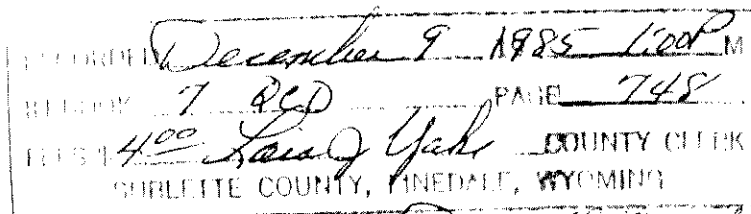 RECORDED December 9 1985 1:00 P M
IN BOOK 7 QCD PAGE 748
FEES $ 4.00 Lois J Yake COUNTY CLERK
SUBLETTE COUNTY, PINEDALE, WYOMING